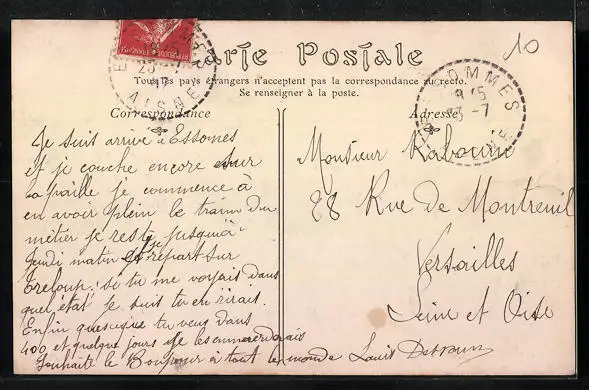 Carte Postale
Tous les pays étrangers n'acceptent pas la correspondance au recto.
Se renseigner à la poste.
Correspondance
Adresse
10
ESSOMMES
AISNE
8 15
23 -7
Je suis arrivé à Essomes
et je couche encore sur
la paille je commence à
en avoir plein le train du
métier je reste jusqu'à
jeudi matin et je répart sur
Treloup. si tu me voyais dans
quel état je suis tu en rirais.
Enfin quesque tu veus dans
400 et quelque jours je les emmerderais
Souhaite le Bonjour à tout le monde Louis
Monsieur Rabouin
28 Rue de Montreuil
Versailles
Seine et Oise